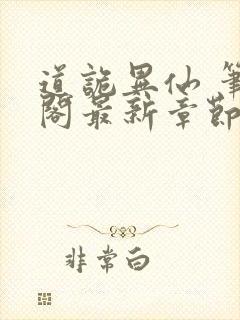 道詭異仙 筆
閣最新章節
非常白